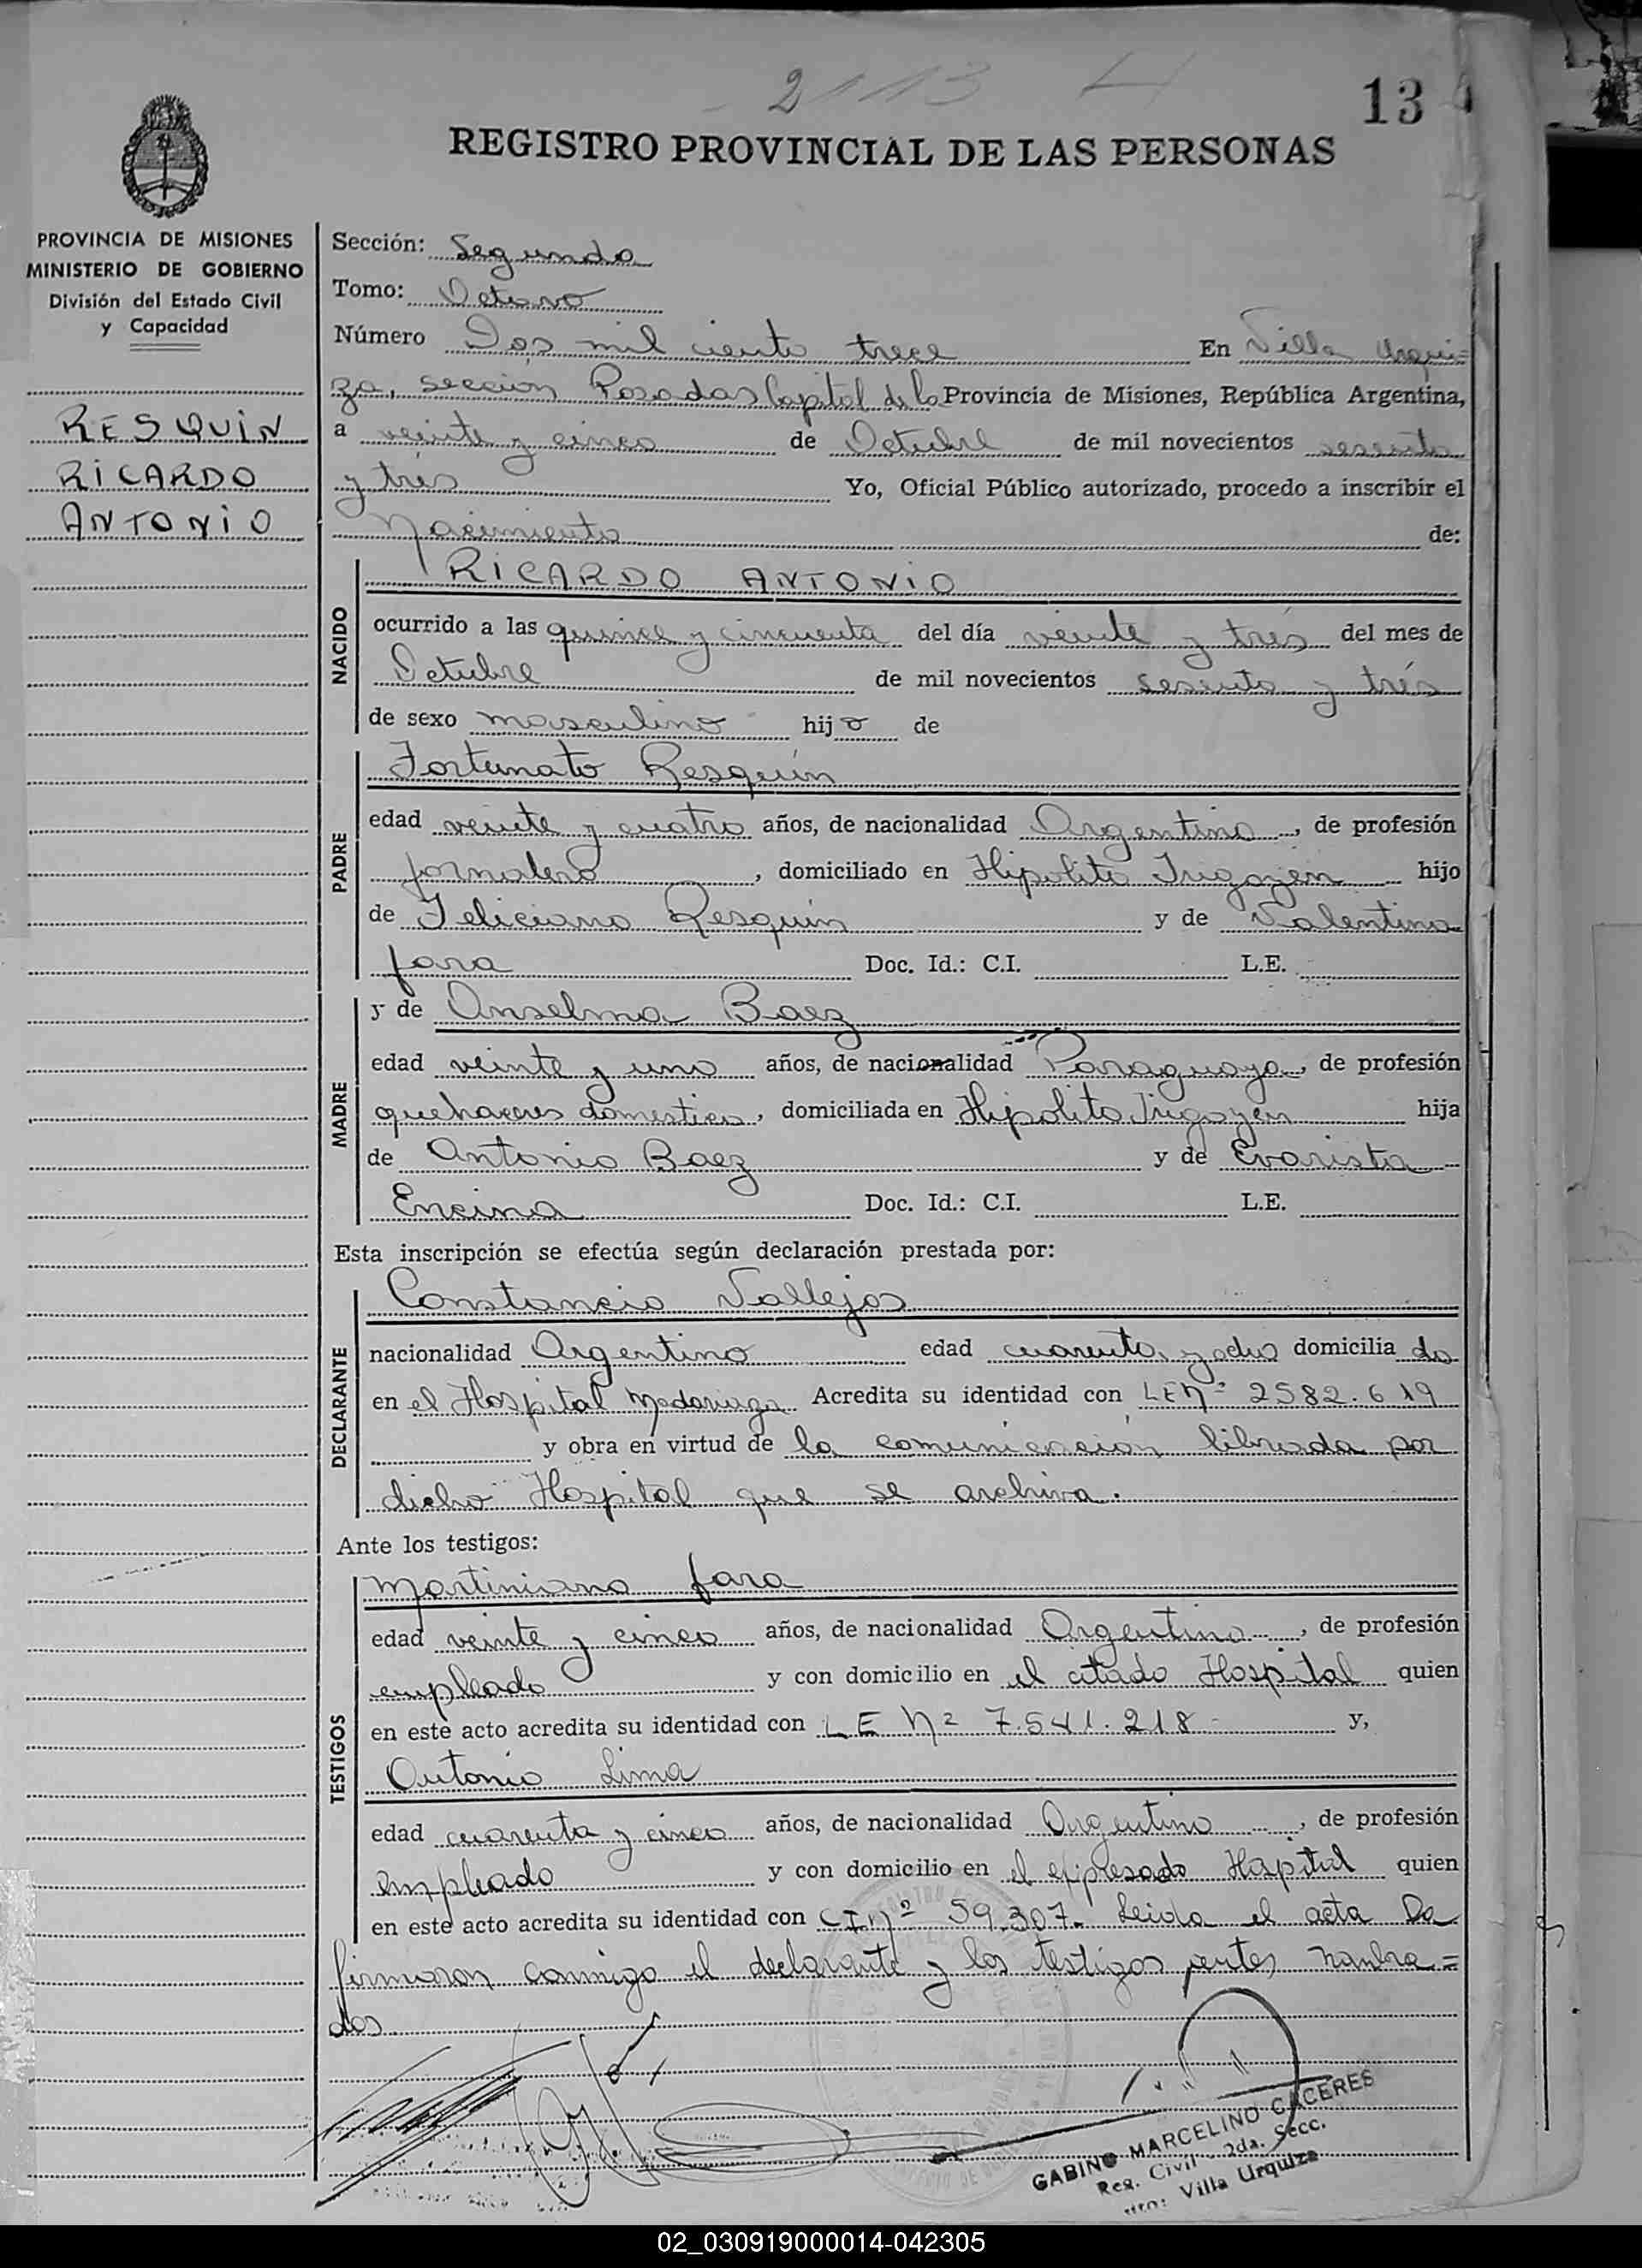 2113
13
REGISTRO PROVINCIAL DE LAS PERSONAS
PROVINCIA DE MISIONES
MINISTERIO DE GOBIERNO
División del Estado Civil
y Capacidad
RESQUIN
RICARDO
ANTONIO
Sección: Segunda
Tomo: Octavo
Número Dos mil ciento trece En Villa Urqui=
za, sección Posadas Capital de la Provincia de Misiones, República Argentina,
a veinte y cinco de Octubre de mil novecientos sesenta
y trés Yo, Oficial Público autorizado, procedo a inscribir el
Nacimiento de:
NACIDO
RICARDO ANTONIO
ocurrido a las quince y cincuenta del día veinte y trés del mes de
Octubre de mil novecientos sesenta y trés
de sexo masculino hijo de
PADRE
Fortunato Resquín
edad veinte y cuatro años, de nacionalidad Argentina, de profesión
jornalero, domiciliado en Hipolito Irigoyen hijo
de Feliciano Resquín y de Valentina
Jara Doc. Id.: C.I. L.E.
MADRE
y de Anselma Baez
edad veinte y uno años, de nacionalidad Paraguaya, de profesión
quehaceres domestico, domiciliada en Hipolito Irigoyen hija
de Antonio Baez y de Evarista
Encina Doc. Id.: C.I. L.E.
Esta inscripción se efectúa según declaración prestada por:
DECLARANTE
Constancio Vallejos
nacionalidad Argentino edad cuarenta y ocho domicilia do
en el Hospital Madariaga Acredita su identidad con LE Nº 2582.619
y obra en virtud de la comunicación librada por
dicho Hospital que se archiva.
Ante los testigos:
TESTIGOS
Martiniano Jara
edad veinte y cinco años, de nacionalidad Argentina, de profesión
empleado y con domicilio en el citado Hospital quien
en este acto acredita su identidad con LE Nº 7.541.218 y,
Antonio Lima
edad cuarenta y cinco años, de nacionalidad Argentina, de profesión
empleado y con domicilio en el expresado Hospital quien
en este acto acredita su identidad con CI Nº 59.307. Leida el acta La
firmaron conmigo el declarante y los testigos nombra=
dos
GABINO MARCELINO CACERES
Reg. Civil - 2da. Secc.
Villa Urquiza
02_030919000014-042305